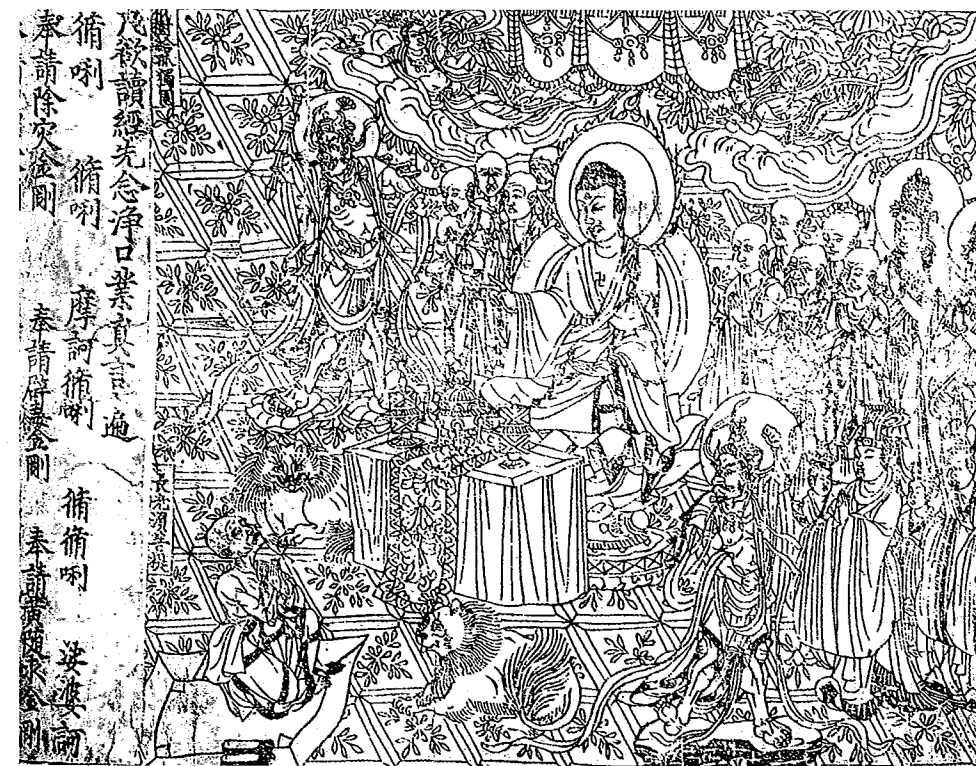 祇樹給孤獨園
長老須菩提
凡欲讀經先念淨口業真言一遍
脩唎 脩唎 摩訶脩唎 脩脩唎 娑婆訶
奉請除灾金剛 奉請辟毒金剛 奉請黃隨求金剛